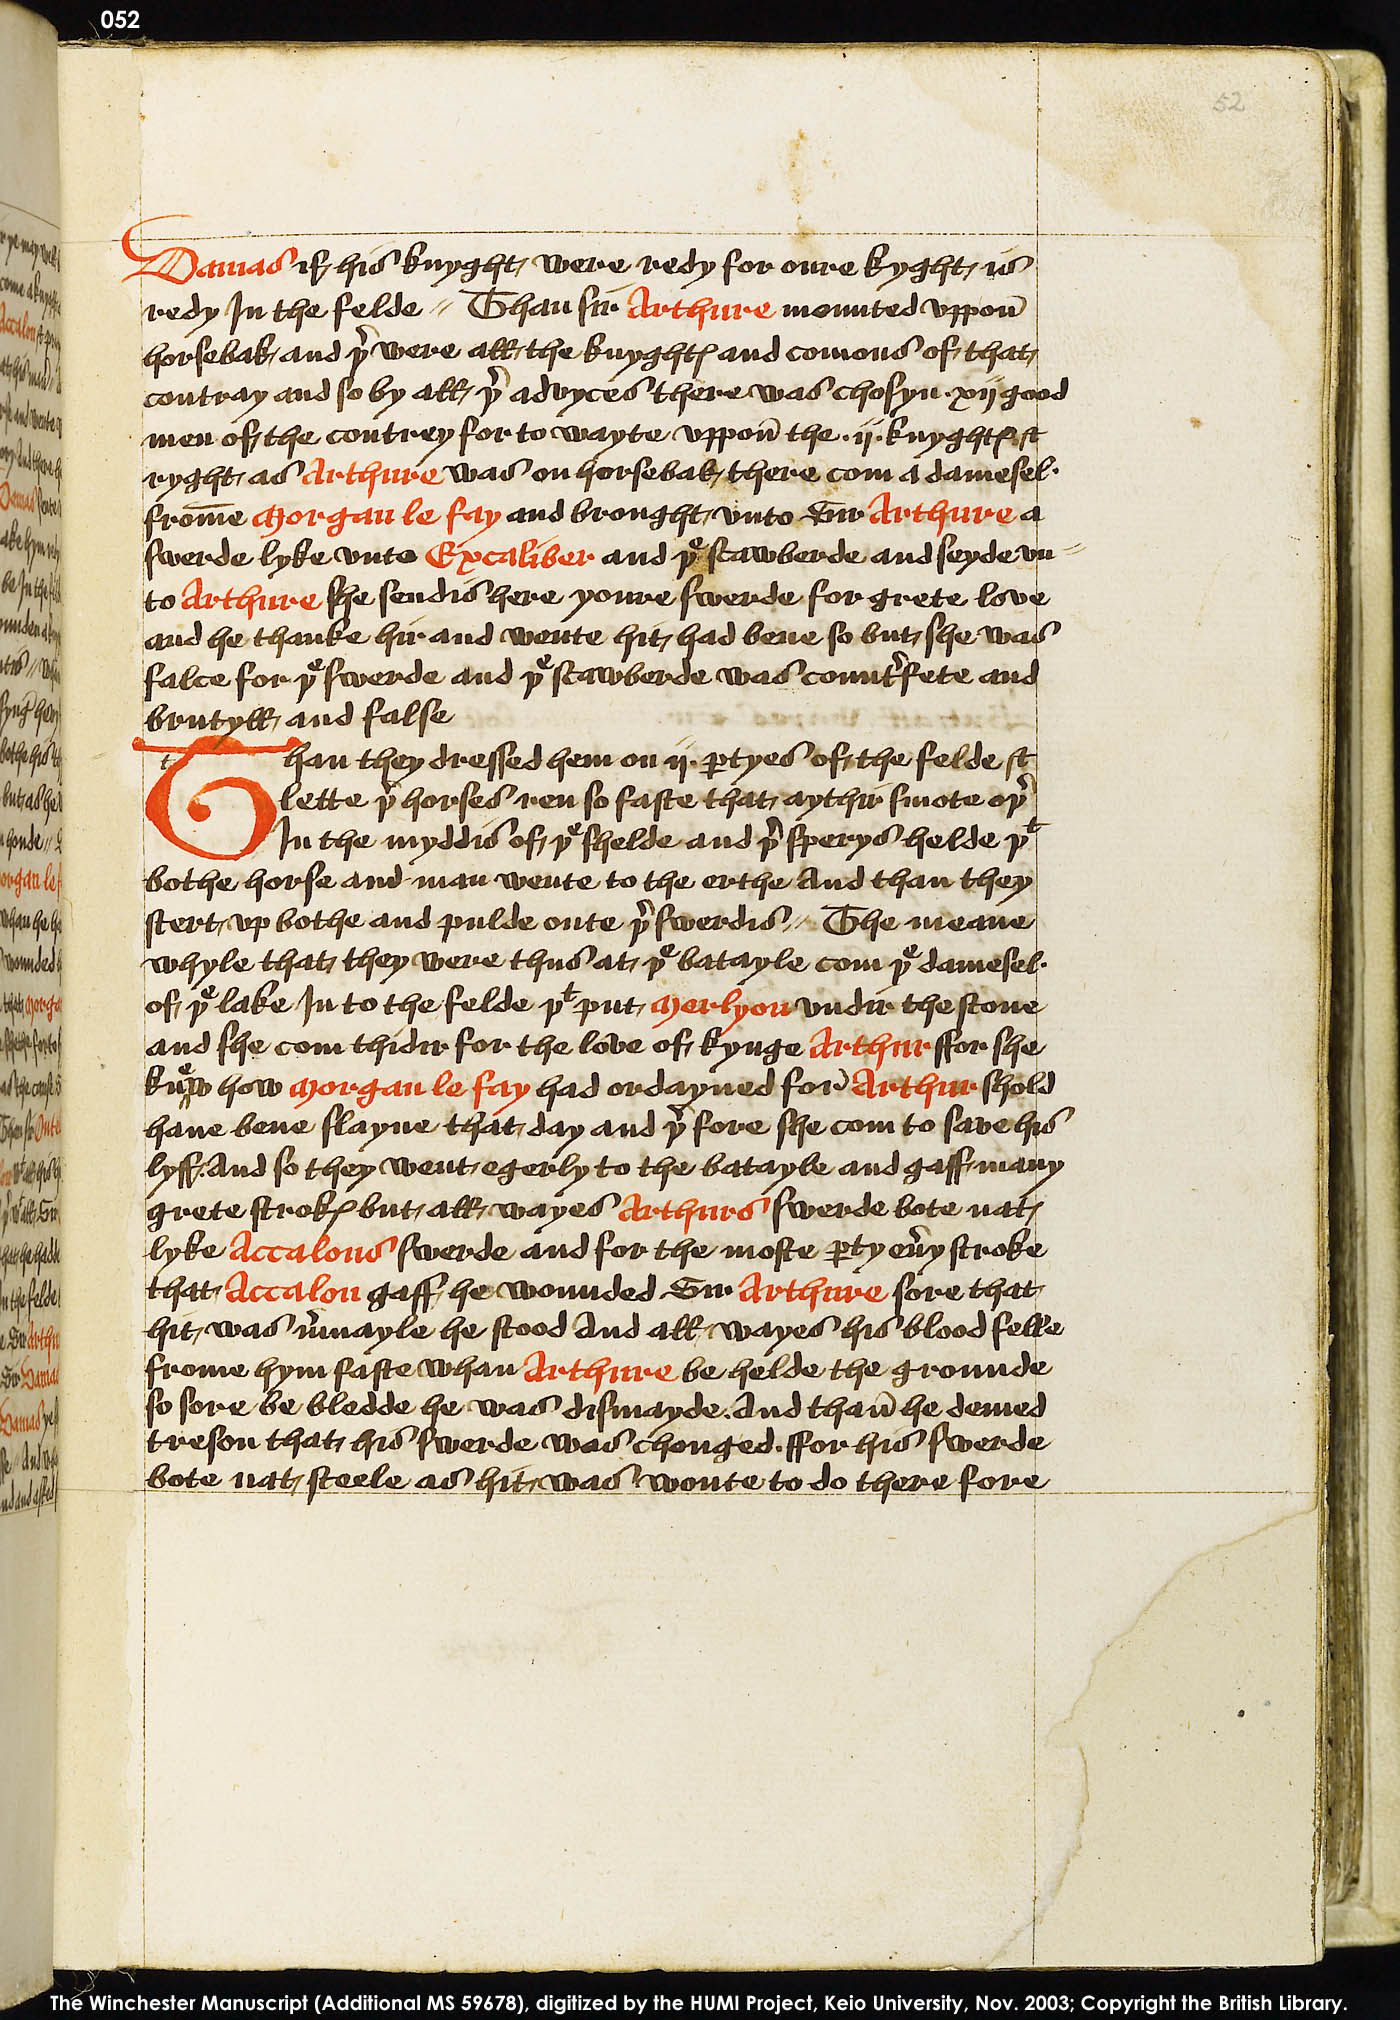 052
52
Damas if his knyght were redy for oure kyght is
redy In the felde // Than sir Arthure mounted vppon̄
horsebak and þr were all the knyghtes and comons of that
contray and so by all þr advyces there was chosyn · xij good
men of the contrey for to wayte vppon̄ the · ij · knyghtes &
ryght as Arthure was on horsebak there com a damesel ·
from̄e Morgan le fay and brought vnto Sir Arthure a
swerde lyke vnto Excaliber and þe scawberde and seyde vn=
to Arthure she sendis here youre swerde for grete love
and he thanke hir and wente hit had bene so but she was
falce for þe swerde and þe scawberde was countrfete and
brutyll and false
t
Than they dressed hem on ij · ꝑtyes of the felde &
lette þr horses ren so faste that aythir smote oþr
In the myddis of þe shelde and þr sperys helde þt
bothe horse and man wente to the erthe And than they
stert vp bothe and pulde oute þr swerdis // The meane
whyle that they were thus at þe batayle com þe damesel ·
of þe lake In to the felde þt put Merlyon vndir the stone
and she com thidir for the love of kynge Arthur ffor she
knew how Morgan le fay had ordayned for Arthur shold
haue bene slayne that day and þr fore she com to save his
lyff · And so they went egerly to the batayle and gaff many
grete strokes but all wayes Arthurs swerde bote nat
lyke Accalons swerde and for the moste ꝑty eūy stroke
that Accalon gaff he wounded Sir Arthure sore that
hit was m̄vayle he stood And all wayes his blood felle
frome hym faste whan Arthure be helde the grounde
so sore be bledde he was dismayde · And than̄ he demed
treson that his swerde was chonged · ffor his swerde
bote nat steele as hit was wonte to do there fore
The Winchester Manuscript (Additional MS 59678), digitized by the HUMI Project, Keio University, Nov. 2003; Copyright the British Library.